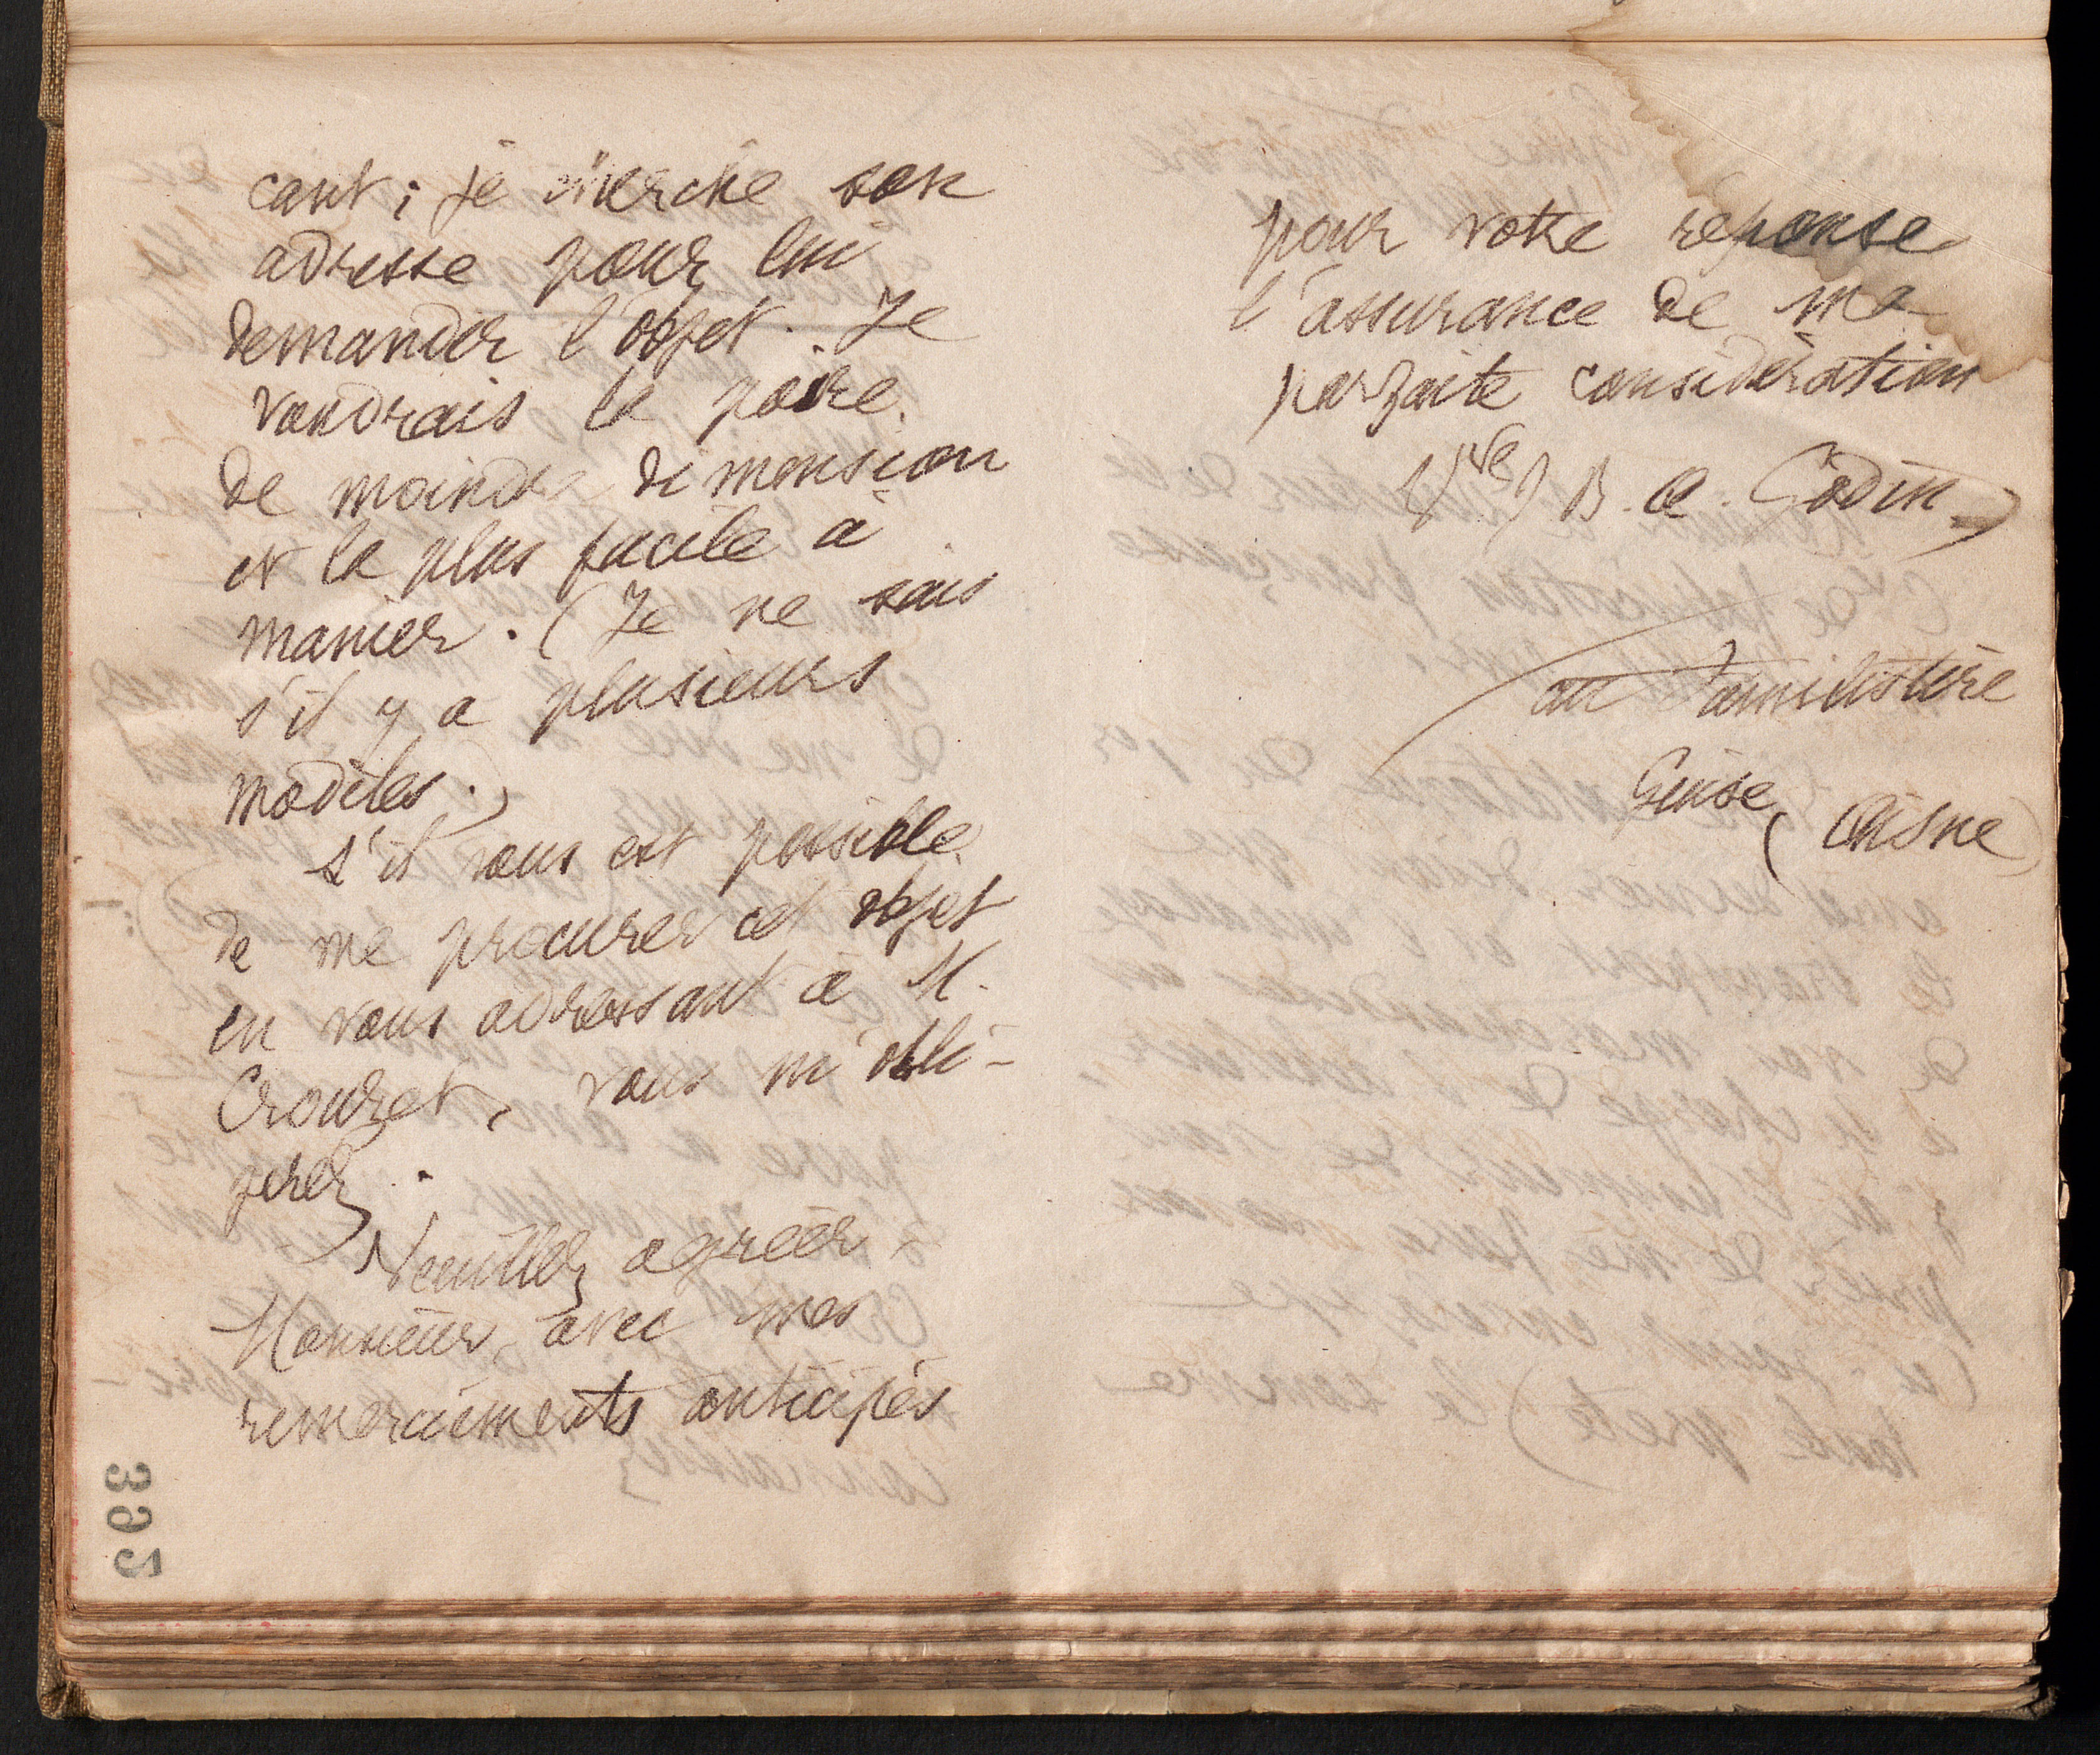 cant ; je cherche son
adresse pour lui
demander l'objet. Je
voudrais la poire
de moindre dimension
et la plus facile à
manier. (Je ne sais
s'il y a plusieurs
modèles.)
S'il vous est possible
de me procurer cet objet
en vous adressant à M.
Crouzet, vous m'obli-
gerez.
Veuillez agréer
Monsieur, avec mes
remerciements anticipés
392
pour votre réponse
l'assurance de ma
parfaite considération
(Vve) B. A. Godin
au Familistère
Guise
(Aisne)